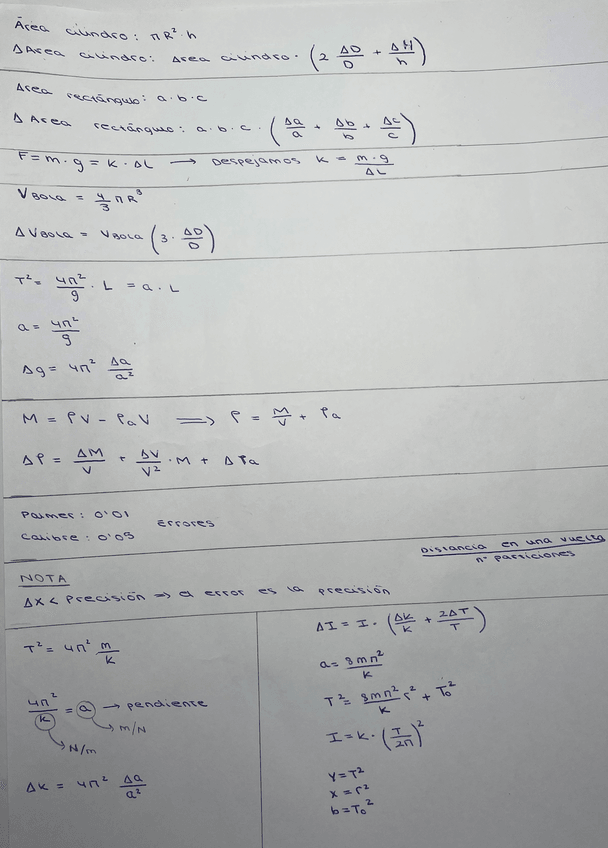 Área cilindro: πR²·h
ΔArea cilindro: Area cilindro·(2 ΔD/D + ΔH/h)
Area rectángulo: a·b·c
Δ Area rectángulo: a·b·c·(Δa/a + Δb/b + Δc/c)
F=m·g=K·ΔL → Despejamos K = m·g/ΔL
V BOLA = 4/3 πR³
ΔV BOLA = V BOLA (3·ΔD/D)
T² = 4π²/g · L = a·L
a = 4π²/g
Δg = 4π² Δa/a²
M = ρV - ρₐV ⟹ ρ = M/V + ρₐ
Δρ = ΔM/V + ΔV/V² · M + Δρₐ
Palmer: 0'01
Errores
Calibre: 0'05
Distancia en una vuelta/nº particiones
NOTA
ΔX < Precisión ⟹ el error es la precisión
T² = 4π² m/K
4π²/K = a → pendiente
m/N
N/m
ΔK = 4π² Δa/a²
ΔI = I·(ΔK/K + 2ΔT/T)
a = 8mπ²/K
T² = 8mπ²/K r² + T₀²
I = K·(T/2π)²
Y = T²
X = r²
b = T₀²